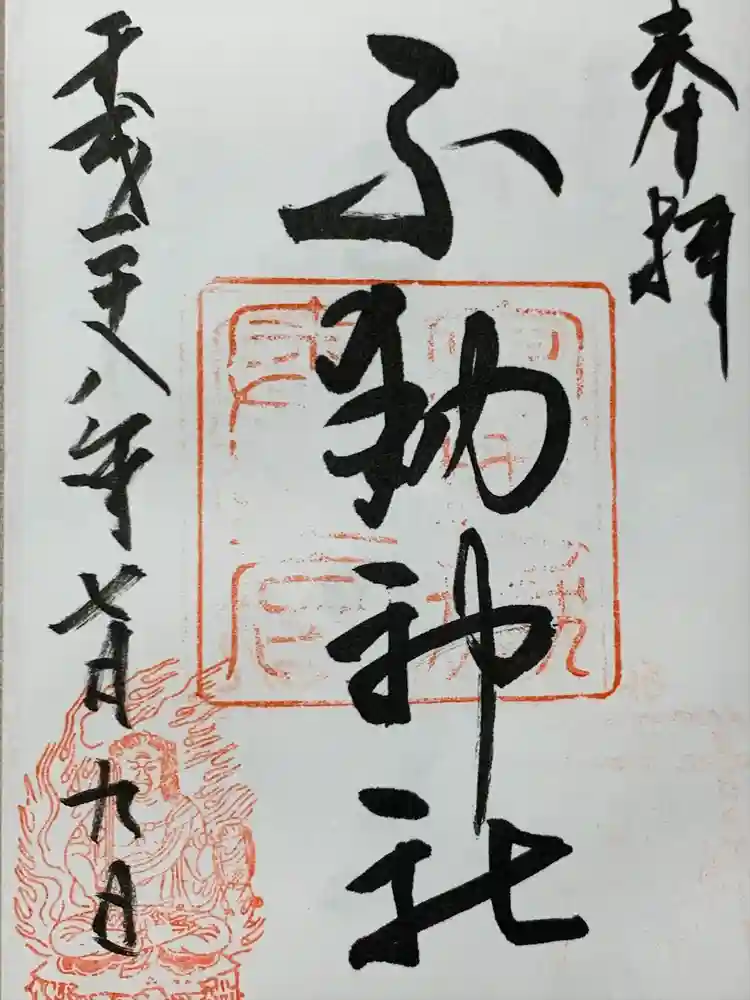 奉拝
不動神社
平成二十八年七月九日